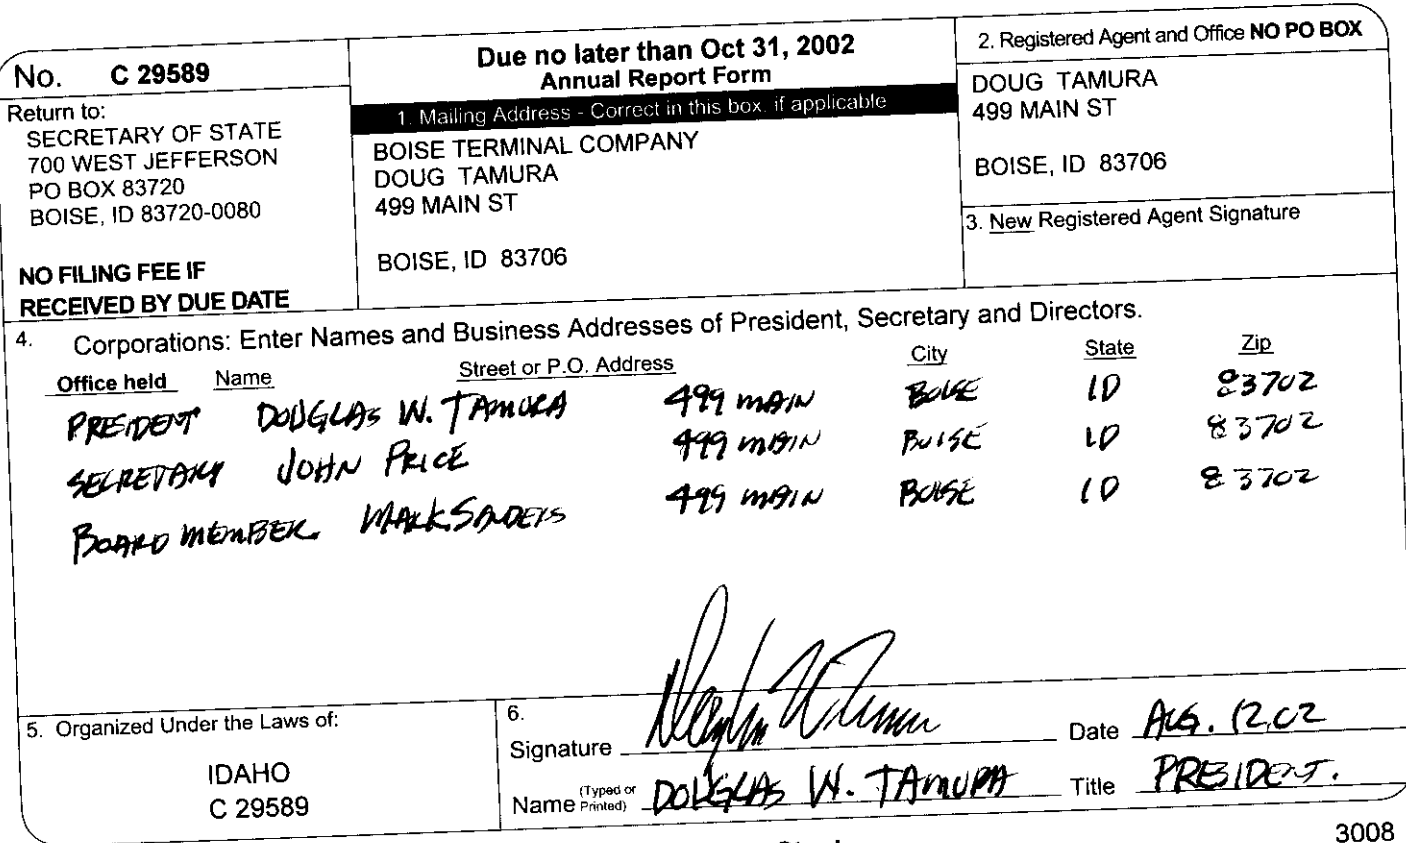 No. C 29589
Return to:
SECRETARY OF STATE
700 WEST JEFFERSON
PO BOX 83720
BOISE, ID 83720-0080
NO FILING FEE IF
RECEIVED BY DUE DATE
Due no later than Oct 31, 2002
Annual Report Form
1. Mailing Address - Correct in this box, if applicable
BOISE TERMINAL COMPANY
DOUG TAMURA
499 MAIN ST
BOISE, ID 83706
2. Registered Agent and Office NO PO BOX
DOUG TAMURA
499 MAIN ST
BOISE, ID 83706
3. New Registered Agent Signature
4. Corporations: Enter Names and Business Addresses of President, Secretary and Directors.
Office held Name Street or P.O. Address City State Zip
PRESIDENT DOUGLAS W. TAMURA 499 MAIN BOISE ID 83702
SECRETARY JOHN PRICE 499 MAIN BOISE ID 83702
BOARD MEMBER MARK SANDERS 499 MAIN BOISE ID 83702
5. Organized Under the Laws of:
IDAHO
C 29589
6.
Signature Date AUG. 12, 02
Name (Typed or Printed) DOUGLAS W. TAMURA Title PRESIDENT.
3008